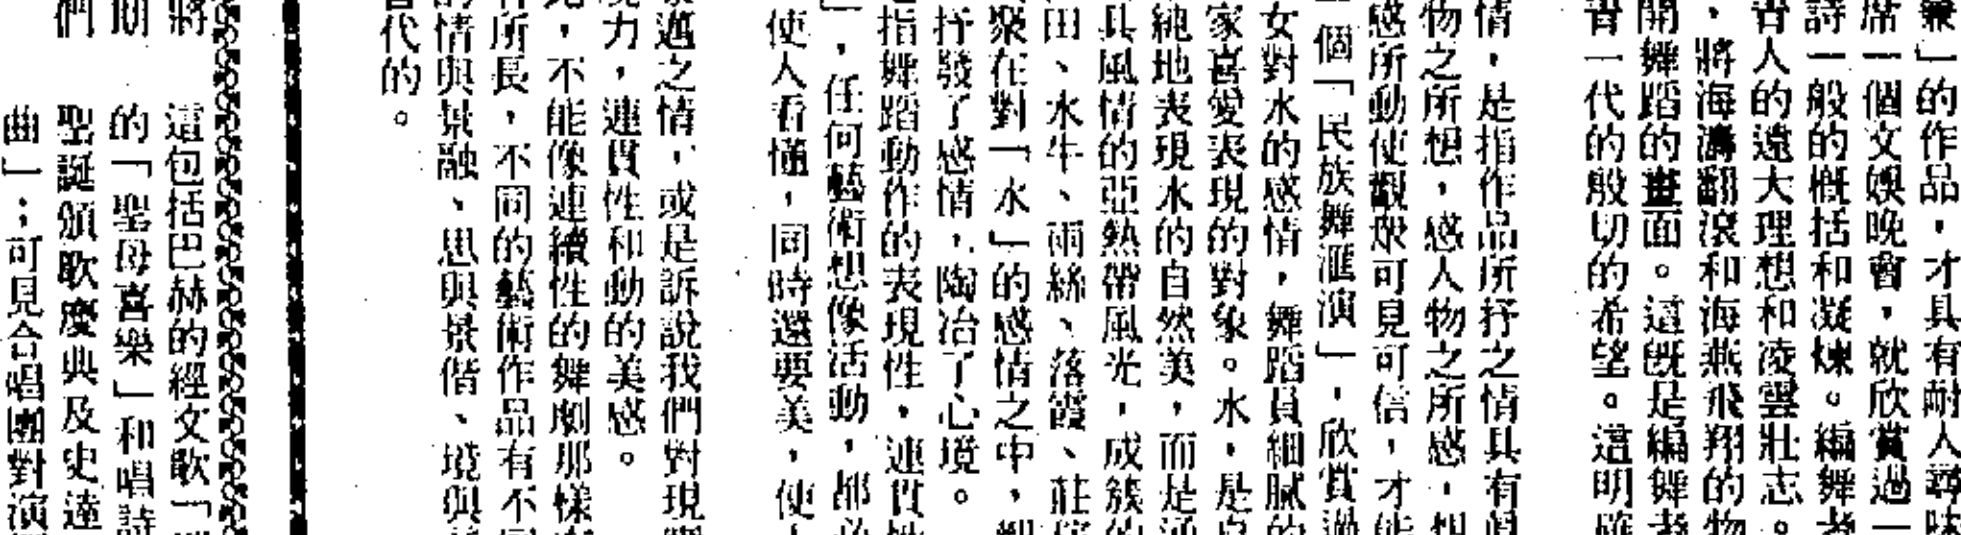 」的作品，才具有耐人尋味
席一個文娛晚會，就欣賞過一
詩一般的概括和凝煉。編舞者
青人的遠大理想和凌雲壯志。
，將海濤翻滾和海燕飛翔的物
開舞蹈的畫面。這既是編舞者
青一代的殷切的希望。這明確
情，是指作品所抒之情具有
物之所想，感人物之所感，想
感所動使觀眾可見可信，才能
個「民族舞滙演」，欣賞過
女對水的感情，舞蹈員細膩的
家喜愛表現的對象。水，是
純地表現水的自然美，而是通
具風情的亞熱帶風光，成簇的
田、水牛、雨絲、落霞、莊稼
聚在對「水」的感情之中，
抒發了感情，陶冶了心境。
指舞蹈動作的表現性，連貫性
」，任何藝術想像活動，都必
使人看懂，同時還要美，使
邁之情，或是訴說我們對現實
力，連貫性和動的美感。
，不能像連續性的舞劇那樣
所長，不同的藝術作品有不同
情與景融、思與景偕、境與
代的。
將 這包括巴赫的經文歌「
期 的「聖母喜樂」和唱詩
們 聖誕頒歌慶典及史達
曲」；可見合唱團對演